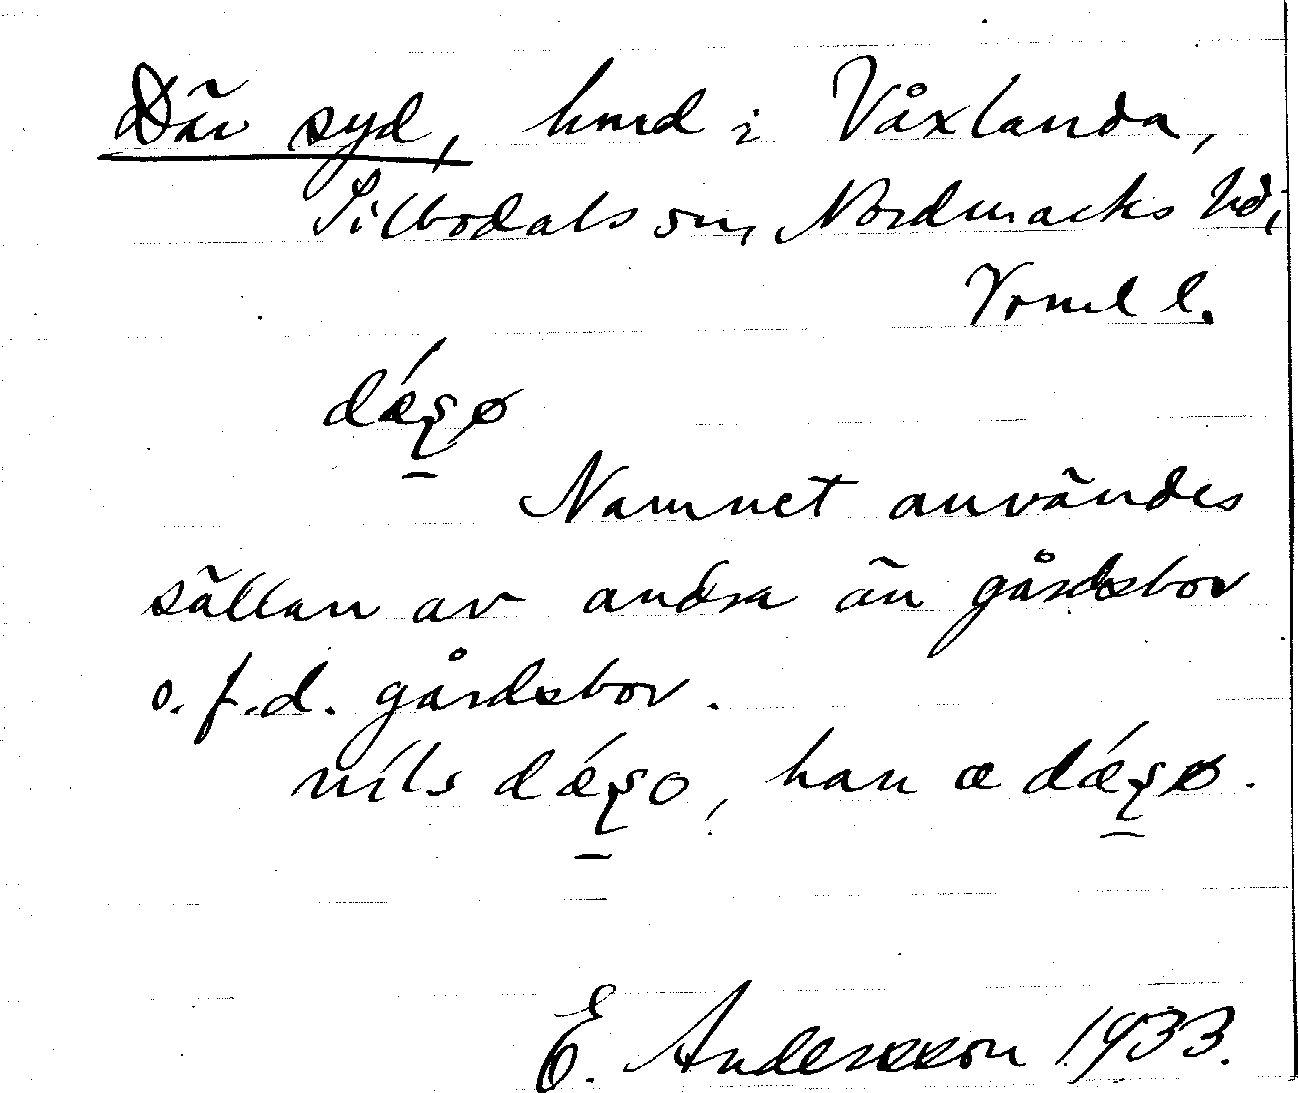 Där syd, hmd i Våxlanda,
Silbodals sn, Nordmarks hd,
Vrml l.
dǽʂø
Namnet användes
sällan av andra än gårdsbor
o. f.d. gårdsbor.
níls dǽʂo, han æ dǽʂø.
E. Andersson 1933.